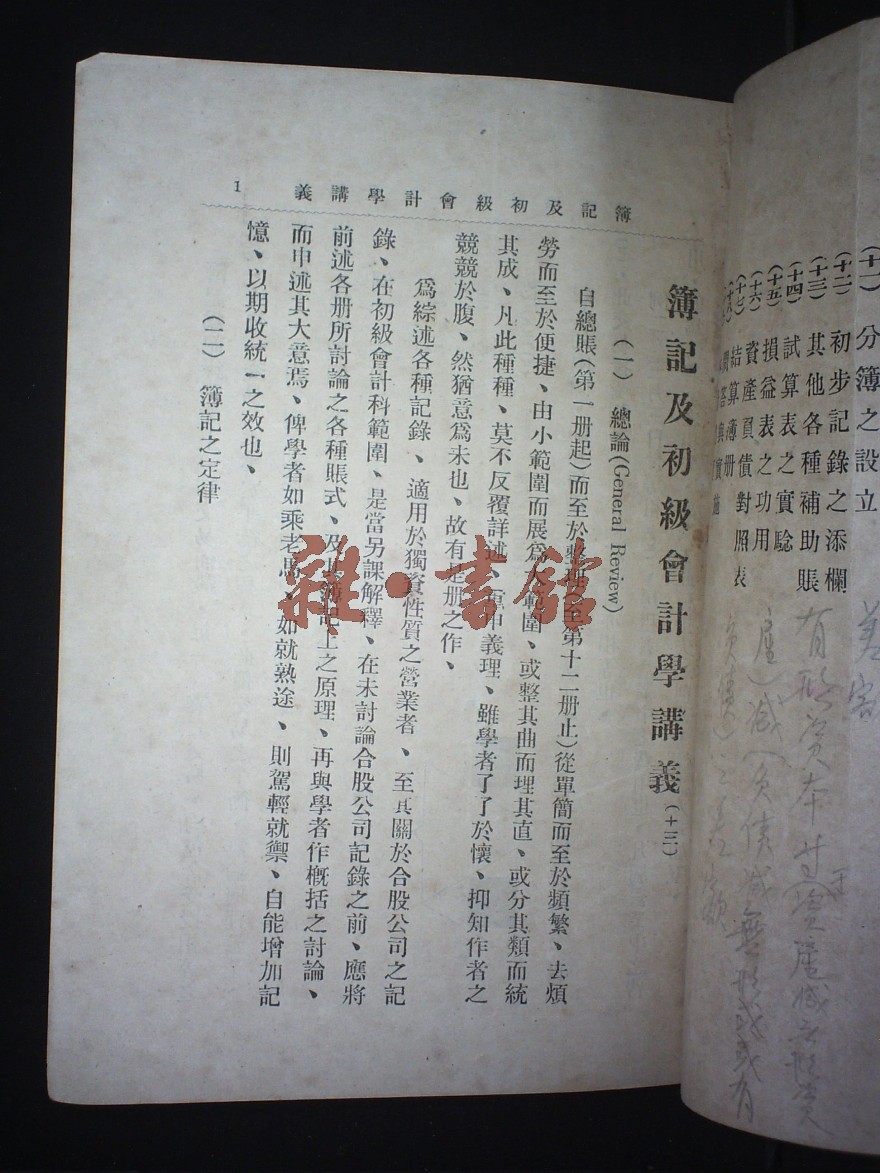 (十一) 分簿之設立
(十二) 初步記錄之添欄
(十三) 其他各種補助賬
(十四) 試算表之實驗
(十五) 損益表之功用
(十六) 資產負債對照表
(十七) 結算簿册
簿記及初級會計學講義 1
簿記及初級會計學講義(十三)
(一) 總論(General Review)
自總賬(第一册起)而至於整理(至第十二册止)從單簡而至於頻繁、去煩
勞而至於便捷、由小範圍而展爲大範圍、或整其曲而理其直、或分其類而統
其成、凡此種種、莫不反覆詳述、重申義理、雖學者了了於懷、抑知作者之
競競於腹、然猶意爲未也、故有是册之作、
爲綜述各種記錄、適用於獨資性質之營業者、至其關於合股公司之記
錄、在初級會計科範圍、是當另課解釋、在未討論合股公司記錄之前、應將
前述各册所討論之各種賬式、及其簿記上之原理、再與學者作概括之討論、
而申述其大意焉、俾學者如乘老馬、如就熟途、則駕輕就禦、自能增加記
憶、以期收統一之效也、
(二) 簿記之定律
雜·書館